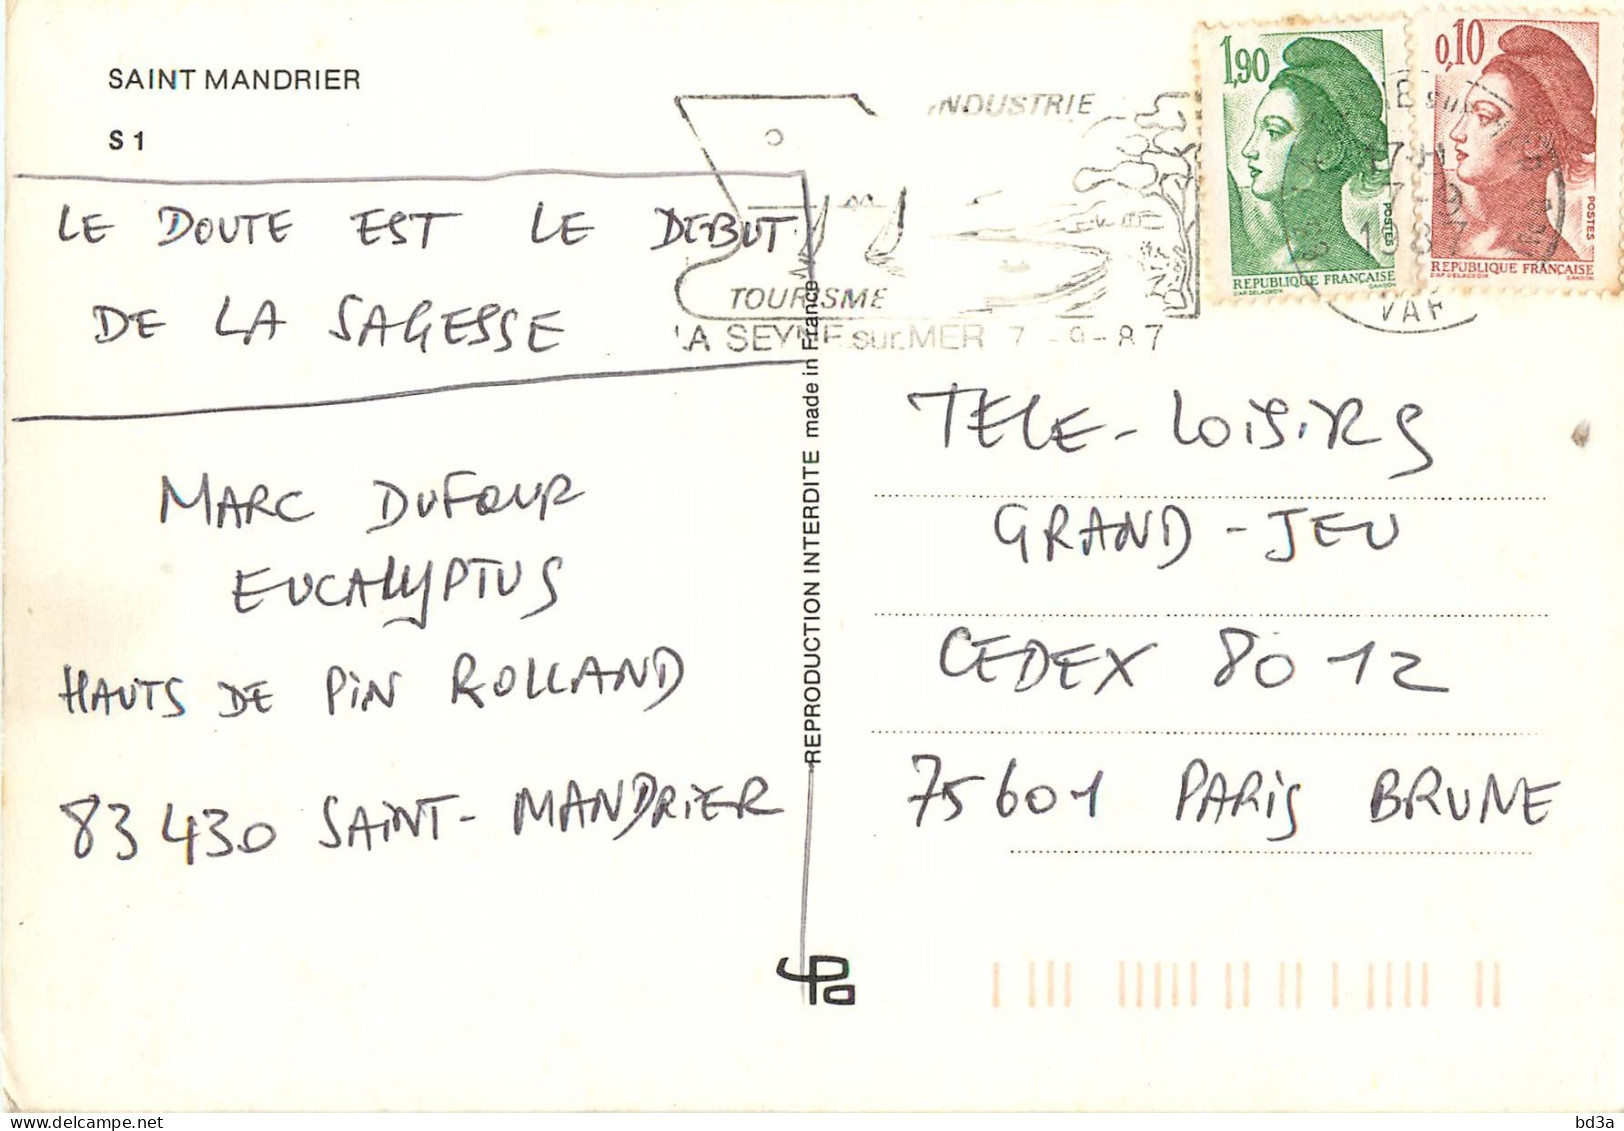 SAINT MANDRIER
S 1
LE DOUTE EST LE DEBUT
DE LA SAGESSE
MARC DUFOUR
EUCALYPTUS
HAUTS DE PIN ROLLAND
83430 SAINT-MANDRIER
REPRODUCTION INTERDITE made in France
INDUSTRIE
TOURISME
LA SEYNE sur MER 7-9-87
1,90
POSTES
RÉPUBLIQUE FRANÇAISE
D'AP. DELACROIX GANDON
0,10
POSTES
RÉPUBLIQUE FRANÇAISE
D'AP. DELACROIX GANDON
VAR
TELE-LOISIRS
GRAND-JEU
CEDEX 8012
75601 PARIS BRUNE
delcampe.net
bd3a